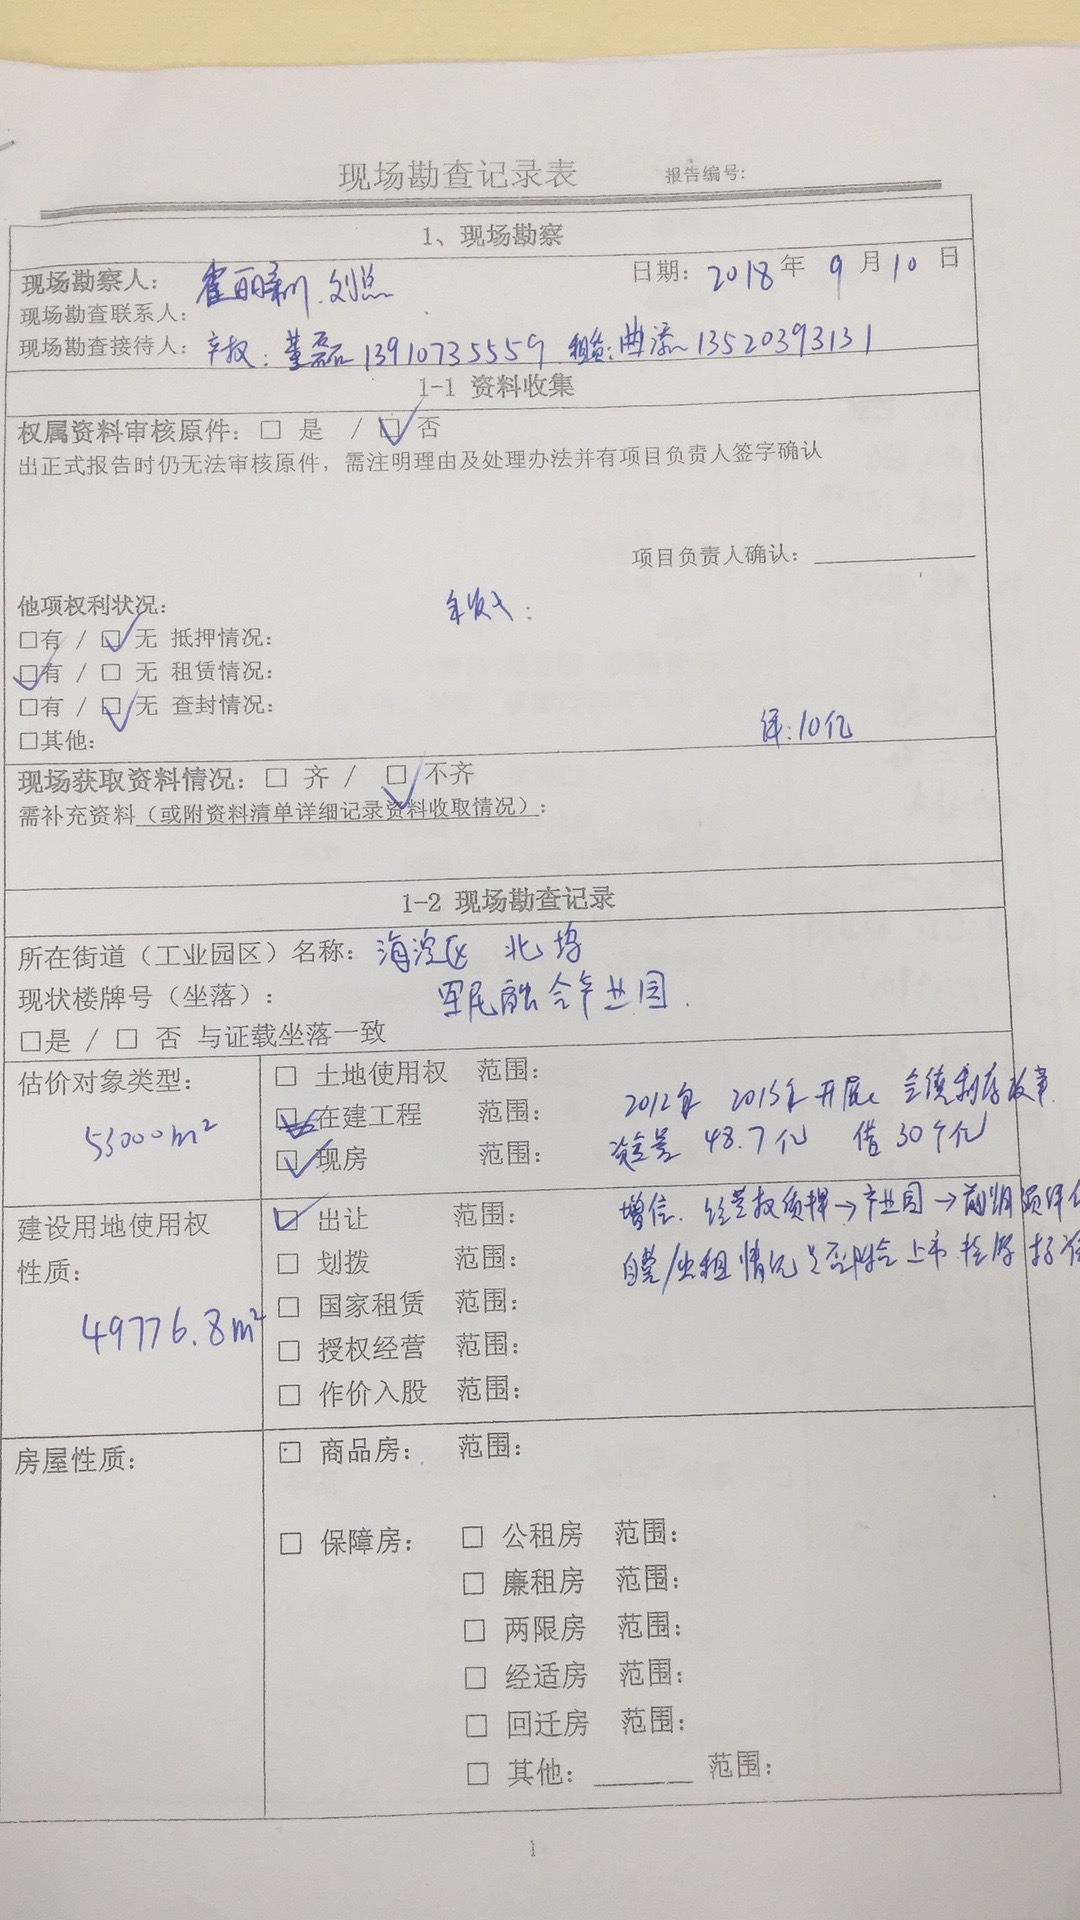 现场勘查记录表 报告编号:
1、现场勘察
现场勘察人: 刘总 日期: 2018年 9月10日
现场勘查联系人:
现场勘查接待人: 董磊 13910735559 租赁: 曲 13520393131
1-1 资料收集
权属资料审核原件: □ 是 / ☑ 否
出正式报告时仍无法审核原件，需注明理由及处理办法并有项目负责人签字确认
项目负责人确认:
他项权利状况: 年收入:
□有 / ☑ 无 抵押情况:
☑有 / □ 无 租赁情况:
□有 / ☑ 无 查封情况:
□其他: 评:10亿
现场获取资料情况: □ 齐 / ☑ 不齐
需补充资料(或附资料清单详细记录资料收取情况):
1-2 现场勘查记录
所在街道(工业园区)名称: 海淀区 北坞
现状楼牌号(坐落): 军民融合产业园.
□是 / □ 否 与证载坐落一致
估价对象类型:
53000m²
□ 土地使用权 范围:
□ 在建工程 范围:
☑ 现房 范围:
2012年 2015年开展
48.7亿 借30个亿
建设用地使用权
性质:
49776.8m²
☑ 出让 范围:
□ 划拨 范围:
□ 国家租赁 范围:
□ 授权经营 范围:
□ 作价入股 范围:
增信. 经营权质押→产业园→前期
自营/出租情况 是否符合上市
房屋性质:
□ 商品房: 范围:
□ 保障房: □ 公租房 范围:
□ 廉租房 范围:
□ 两限房 范围:
□ 经适房 范围:
□ 回迁房 范围:
□ 其他: 范围:
1